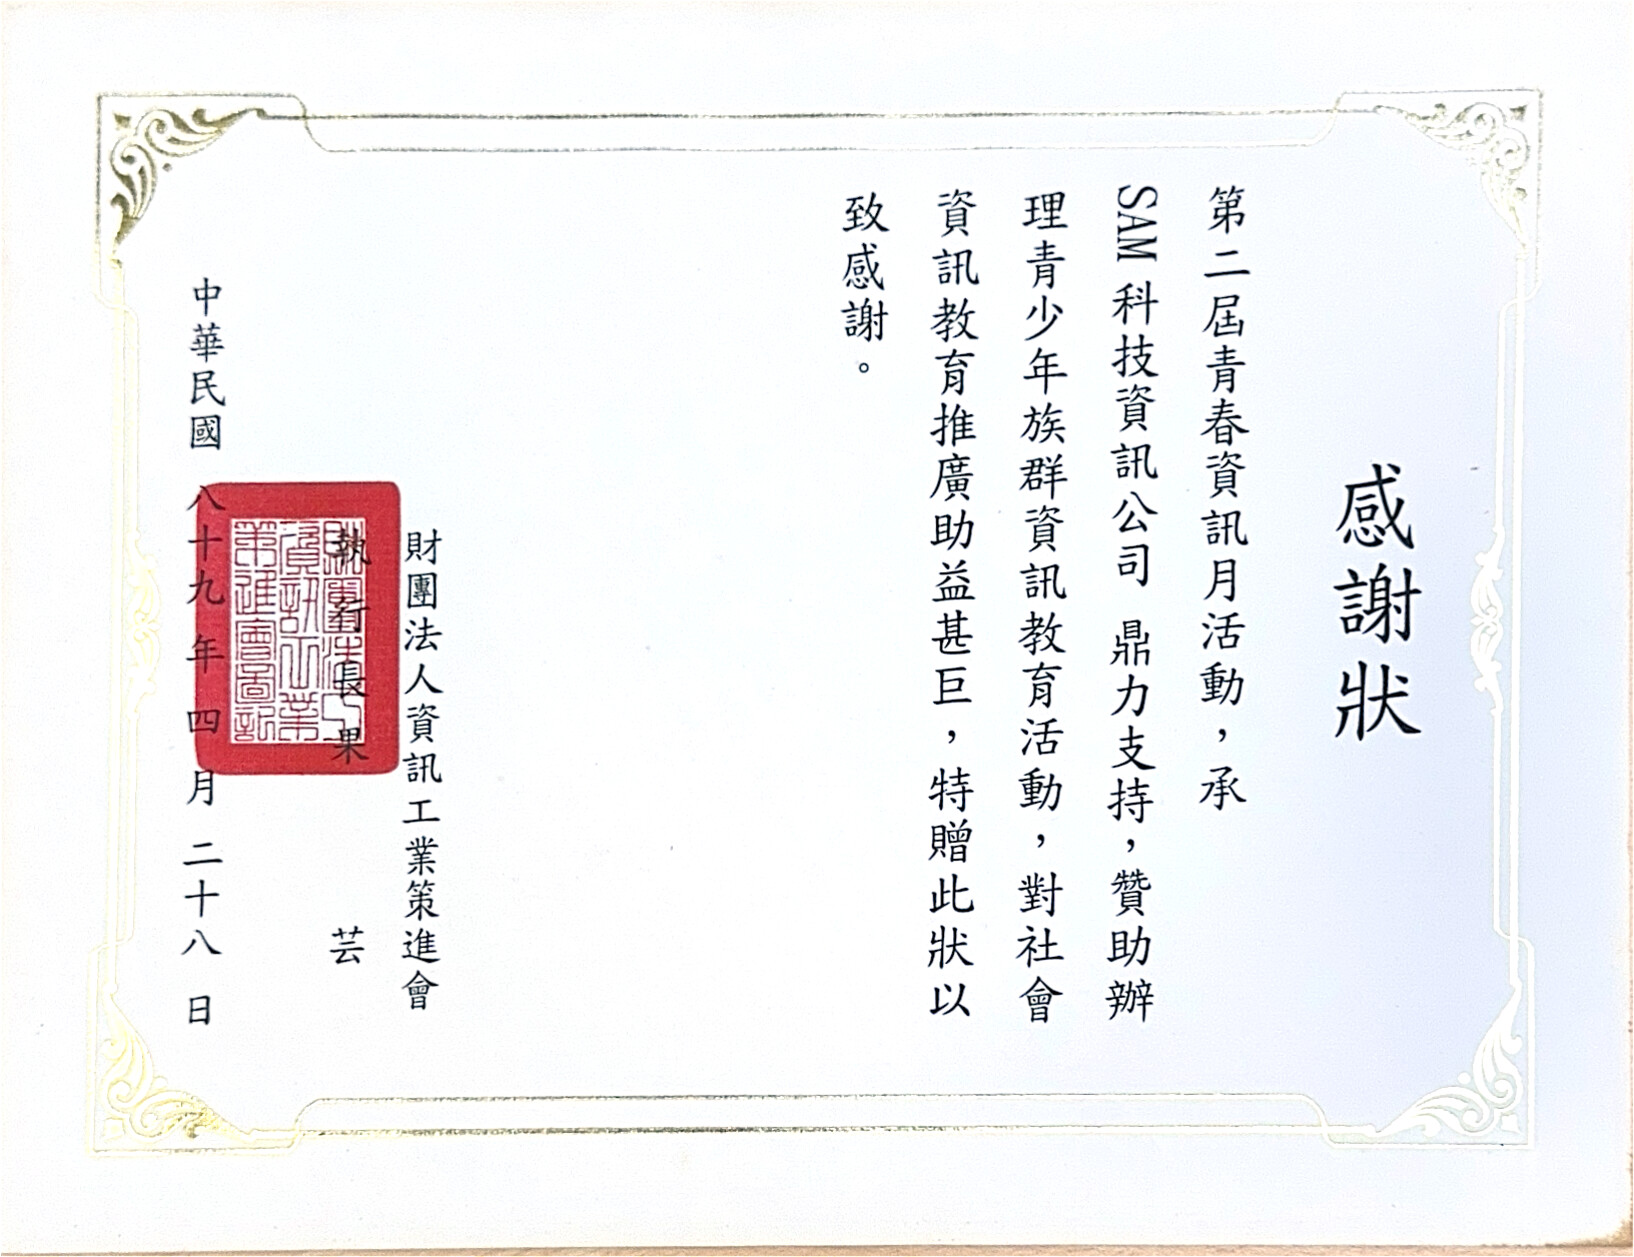 感謝狀
第二屆青春資訊月活動，承
SAM 科技資訊公司 鼎力支持，贊助辦
理青少年族群資訊教育活動，對社會
資訊教育推廣助益甚巨，特贈此狀以
致感謝。
財團法人資訊工業策進會
執行長 果 芸
財團法人
資訊工業
策進會圖記
中華民國 八十九 年 四 月 二十八 日